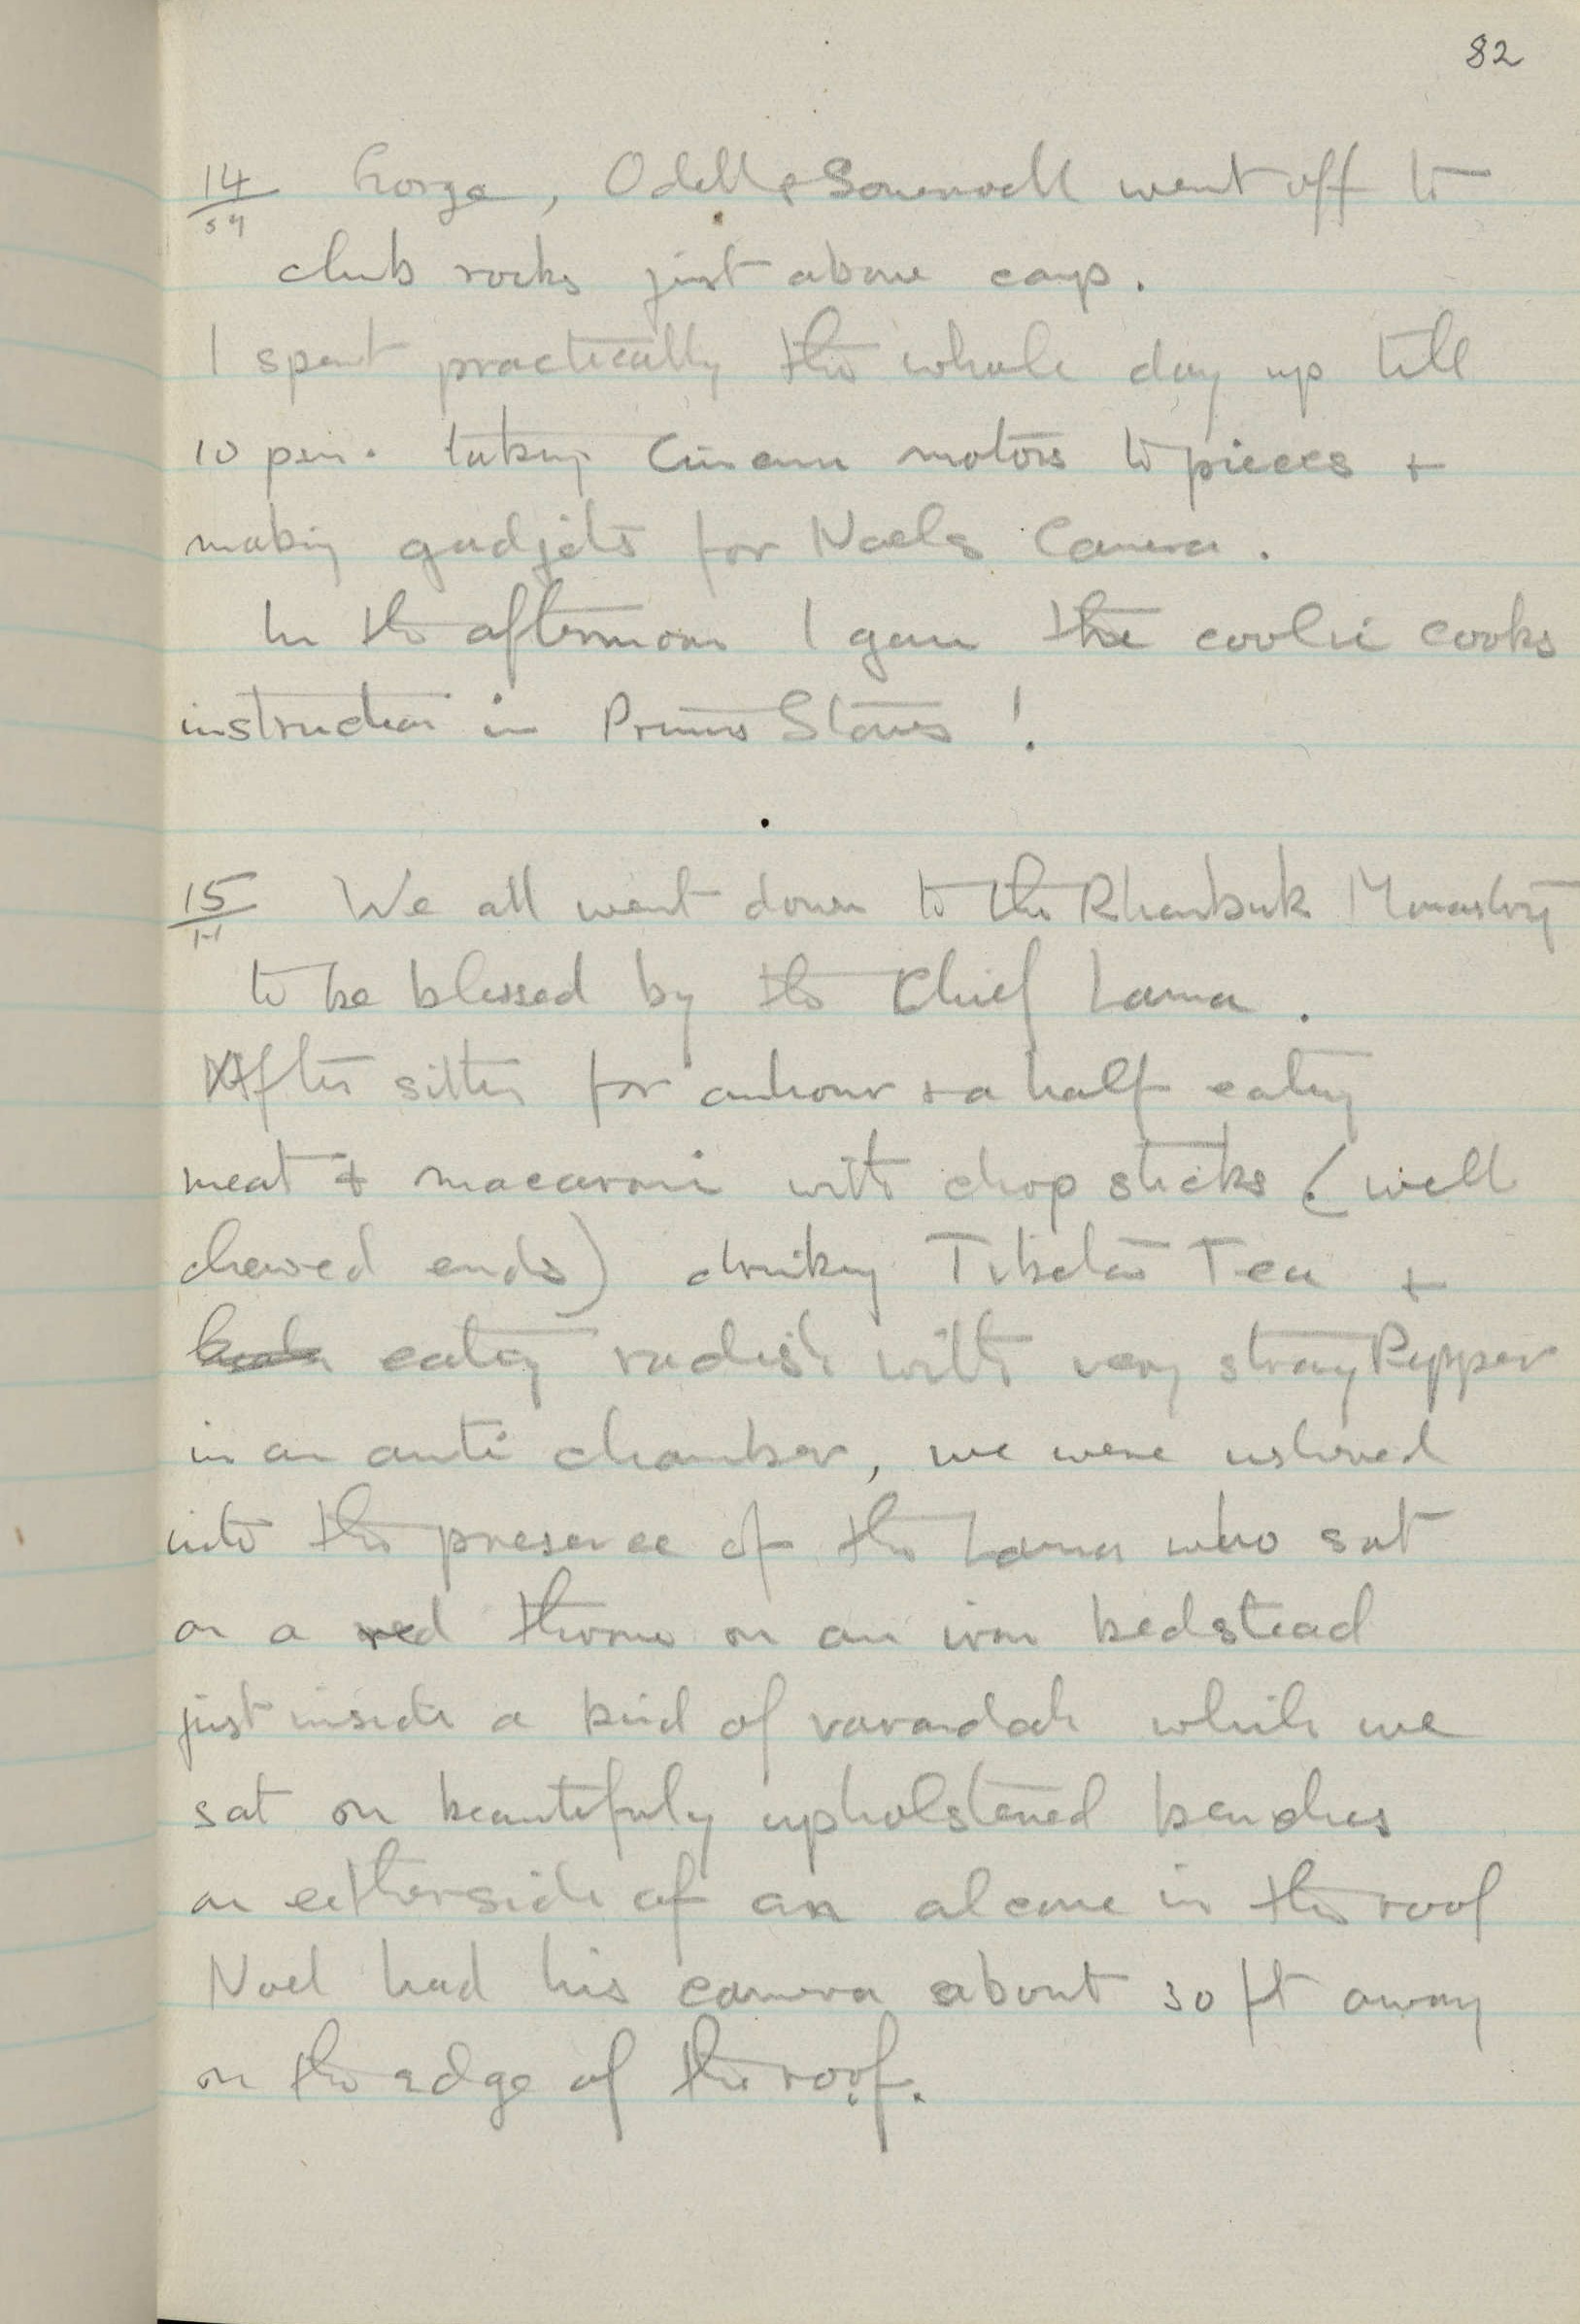 82
14 George, Odell & Somervell went off to
climb rocks just above camp.
I spent practically the whole day up till
10 p.m. taking Cinema motors to pieces +
making gadjets for Noels Camera.
In the afternoon I gave the coolie cooks
instruction in Primus Stoves !
15 We all went down to the Rhanbuk Monastery
to be blessed by the Chief Lama.
After sitting for an hour & a half eating
meat & macaroni with chop sticks (well
chewed ends) drinking Tibetan Tea +
eating radish with very strong Pepper
in an anti chamber, we were ushered
into the presence of the Lama who sat
on a red throne on an iron bedstead
just inside a kind of varandah while we
sat on beautifuly upholstered benches
on either side of an alcove in the roof
Noel had his camera about 30 ft away
on the edge of the roof.